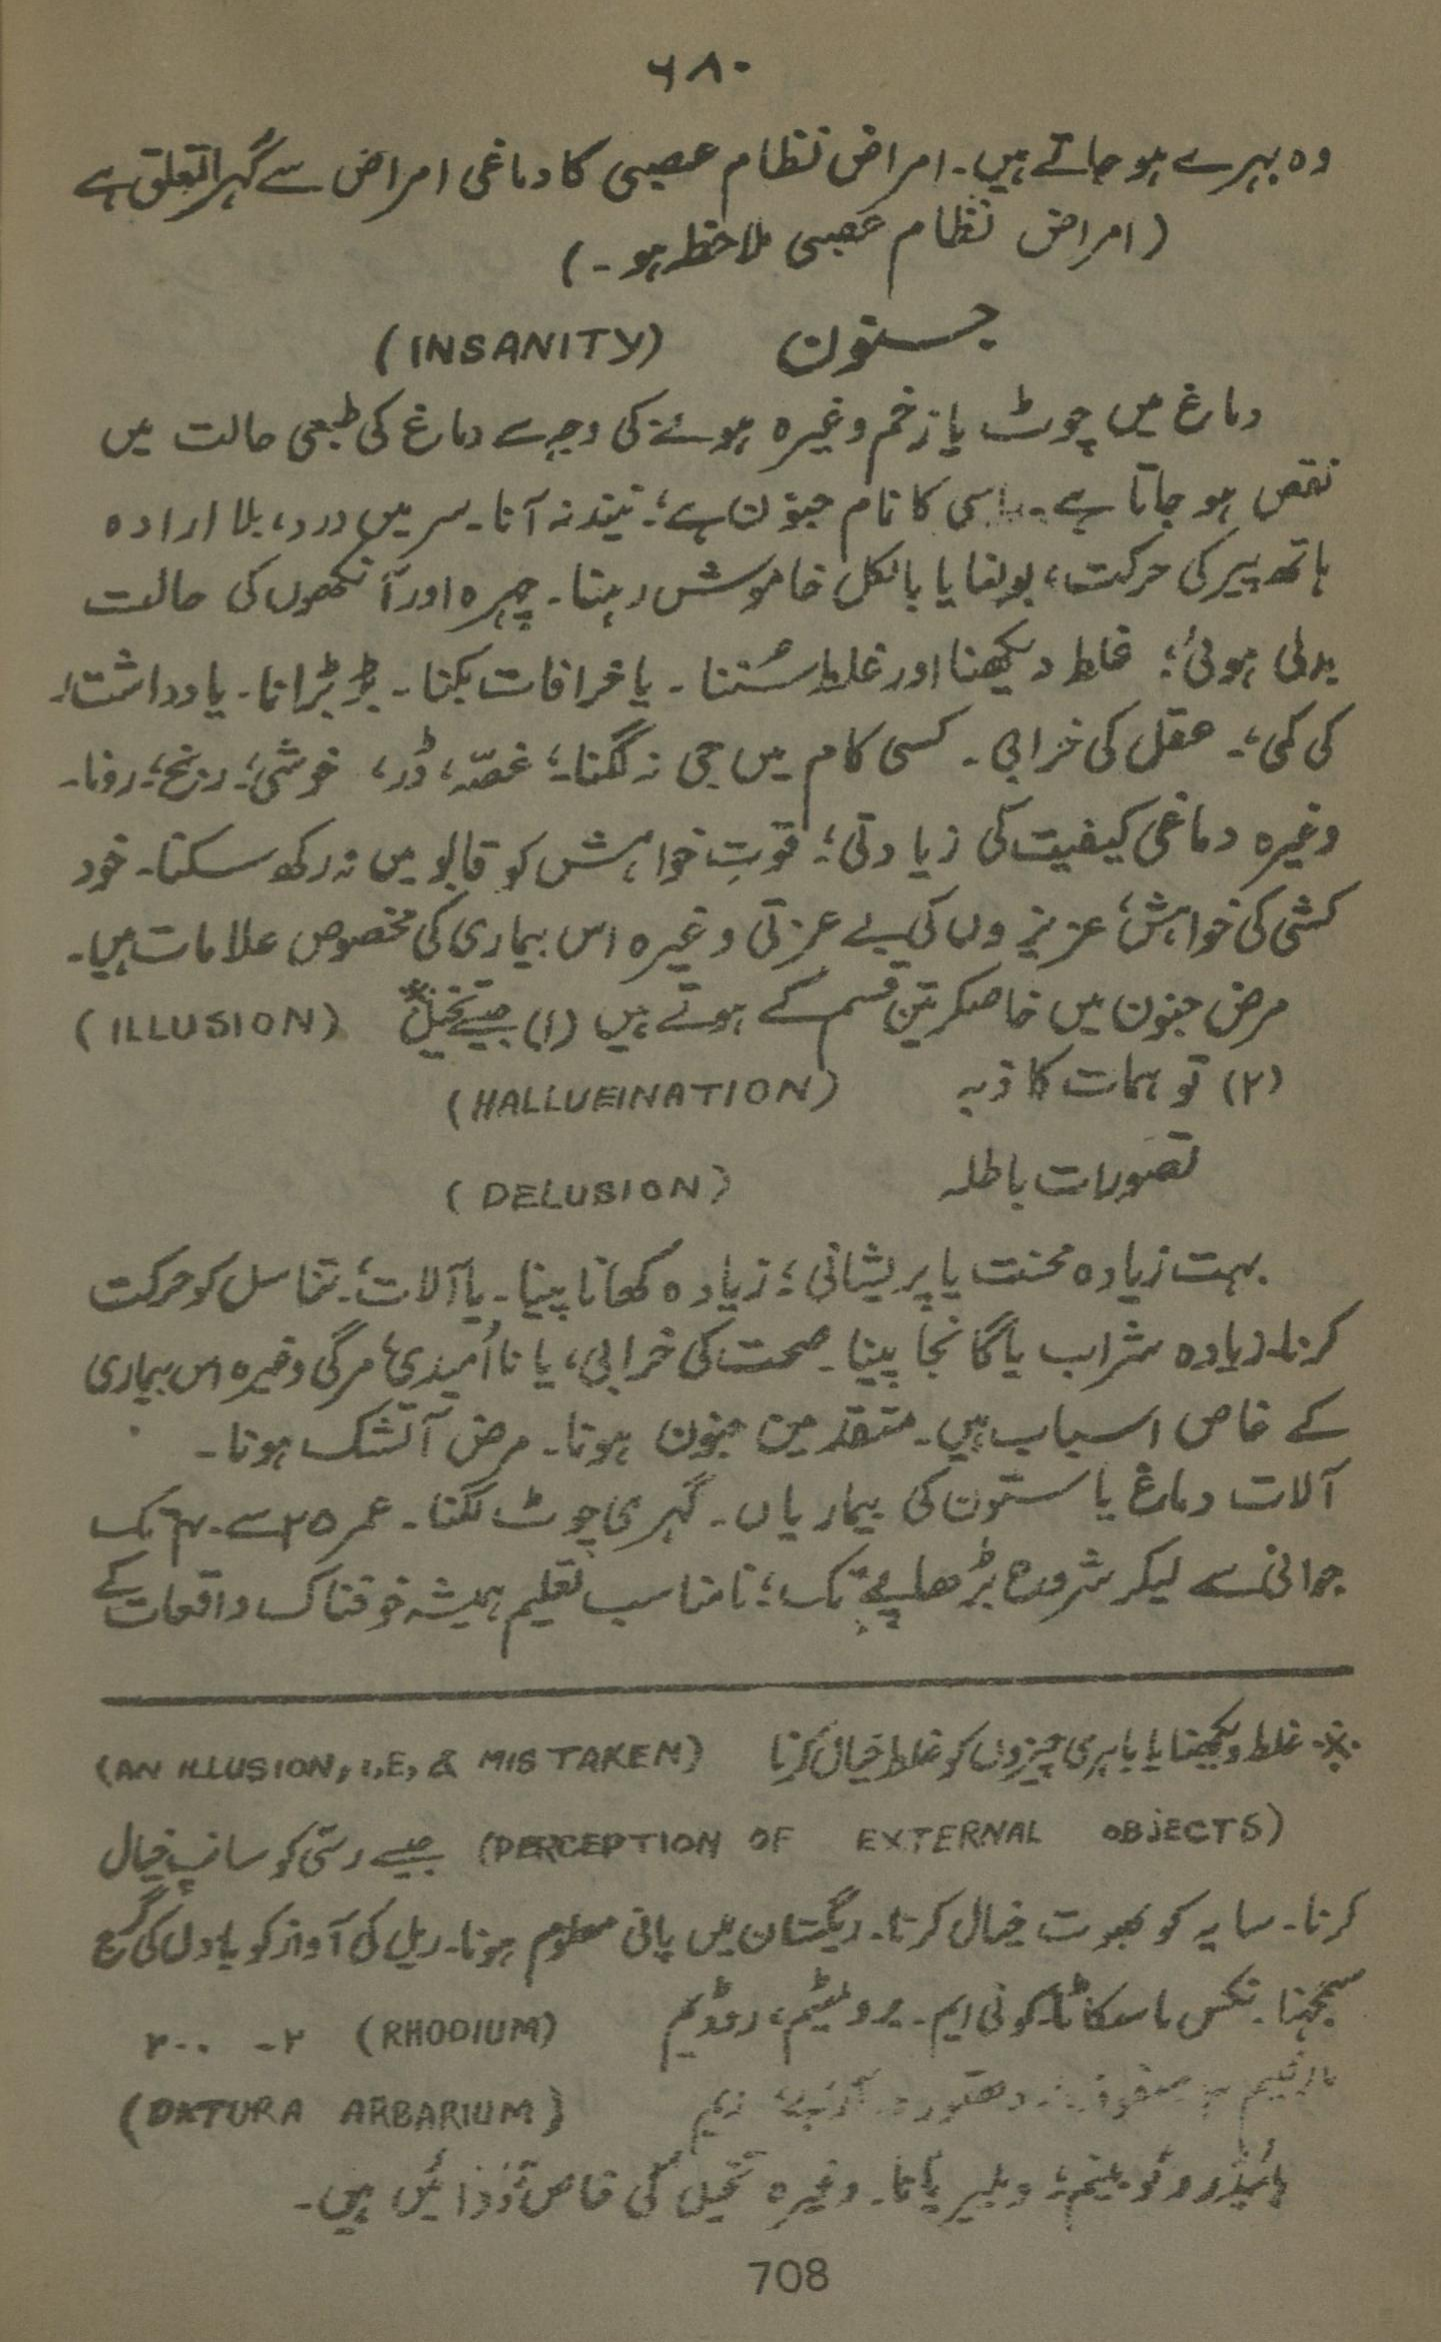 ۶۸۰
وہ بہرے ہو جاتے ہیں۔ امراض نظام عصبی کا دماغی امراض سے گہرا تعلق ہے
(امراض نظام عصبی ملاحظہ ہو۔)
جنون (INSANITY)
دماغ میں چوٹ یا زخم وغیرہ ہونے کی وجہ سے دماغ کی طبعی حالت میں
نقص ہو جاتا ہے۔ اسی کا نام جنون ہے؛ نیند نہ آنا۔ سر میں درد، بلا ارادہ
ہاتھ پیر کی حرکت، بولنا یا بالکل خاموش رہنا۔ چہرہ اور آنکھوں کی حالت
بدلی ہوئی؛ غلط دیکھنا اور غلط سُننا۔ یا خرافات بکنا۔ بڑبڑانا۔ یادداشت
کی کمی؛ عقل کی خرابی۔ کسی کام میں جی نہ لگنا؛ غصّہ، ڈر، خوشی؛ رنج؛ رونا۔
وغیرہ دماغی کیفیت کی زیادتی؛ قوتِ خواہش کو قابو میں نہ رکھ سکنا۔ خود
کشی کی خواہش؛ عزیزوں کی بے عزتی وغیرہ اس بیماری کی مخصوص علامات ہیں۔
مرض جنون میں خاصکر تین قسم کے ہوتے ہیں (۱) جیسے تخیل※ (ILLUSION)
(۲) توہمات کاذبہ (HALLUEINATION)
تصورات باطلہ (DELUSION)
بہت زیادہ محنت یا پریشانی؛ زیادہ کھانا پینا۔ یا آلات؛ تناسل کو حرکت
کرنا۔ زیادہ شراب یا گانجا پینا۔ صحت کی خرابی، یا نا اُمیدی؛ مرگی وغیرہ اس بیماری
کے خاص اسباب ہیں۔ متقدمین جنون ہونا۔ مرض آتشک ہونا۔
آلات دماغ یا ستون کی بیماریاں۔ گہری چوٹ لگنا۔ عمر ۲۵ سے ۴۰ تک
جوانی سے لیکر شروع بڑھاپے تک؛ نامناسب تعلیم ہمیشہ خوفناک واقعات کے
※ غلط دیکھنا یا باہری چیزوں کو غلط خیال کرنا (AN ILLUSION, I,E, & MISTAKEN)
(PERCEPTION OF EXTERNAL OBJECTS) جیسے رسّی کو سانپ خیال
کرنا۔ سایہ کو بھوت خیال کرنا۔ ریگستان میں پانی معلوم ہونا۔ ریل کی آواز کو بادل کی گرج
سمجھنا۔ نکس ماسکاٹا، کونی ایم۔ روڈیم (RHODIUM) ۲- ۲۰۰
سفوف دھتورہ (DATURA ARBARIUM)
وغیرہ تخیل کی خاص دوائیں ہیں۔
708